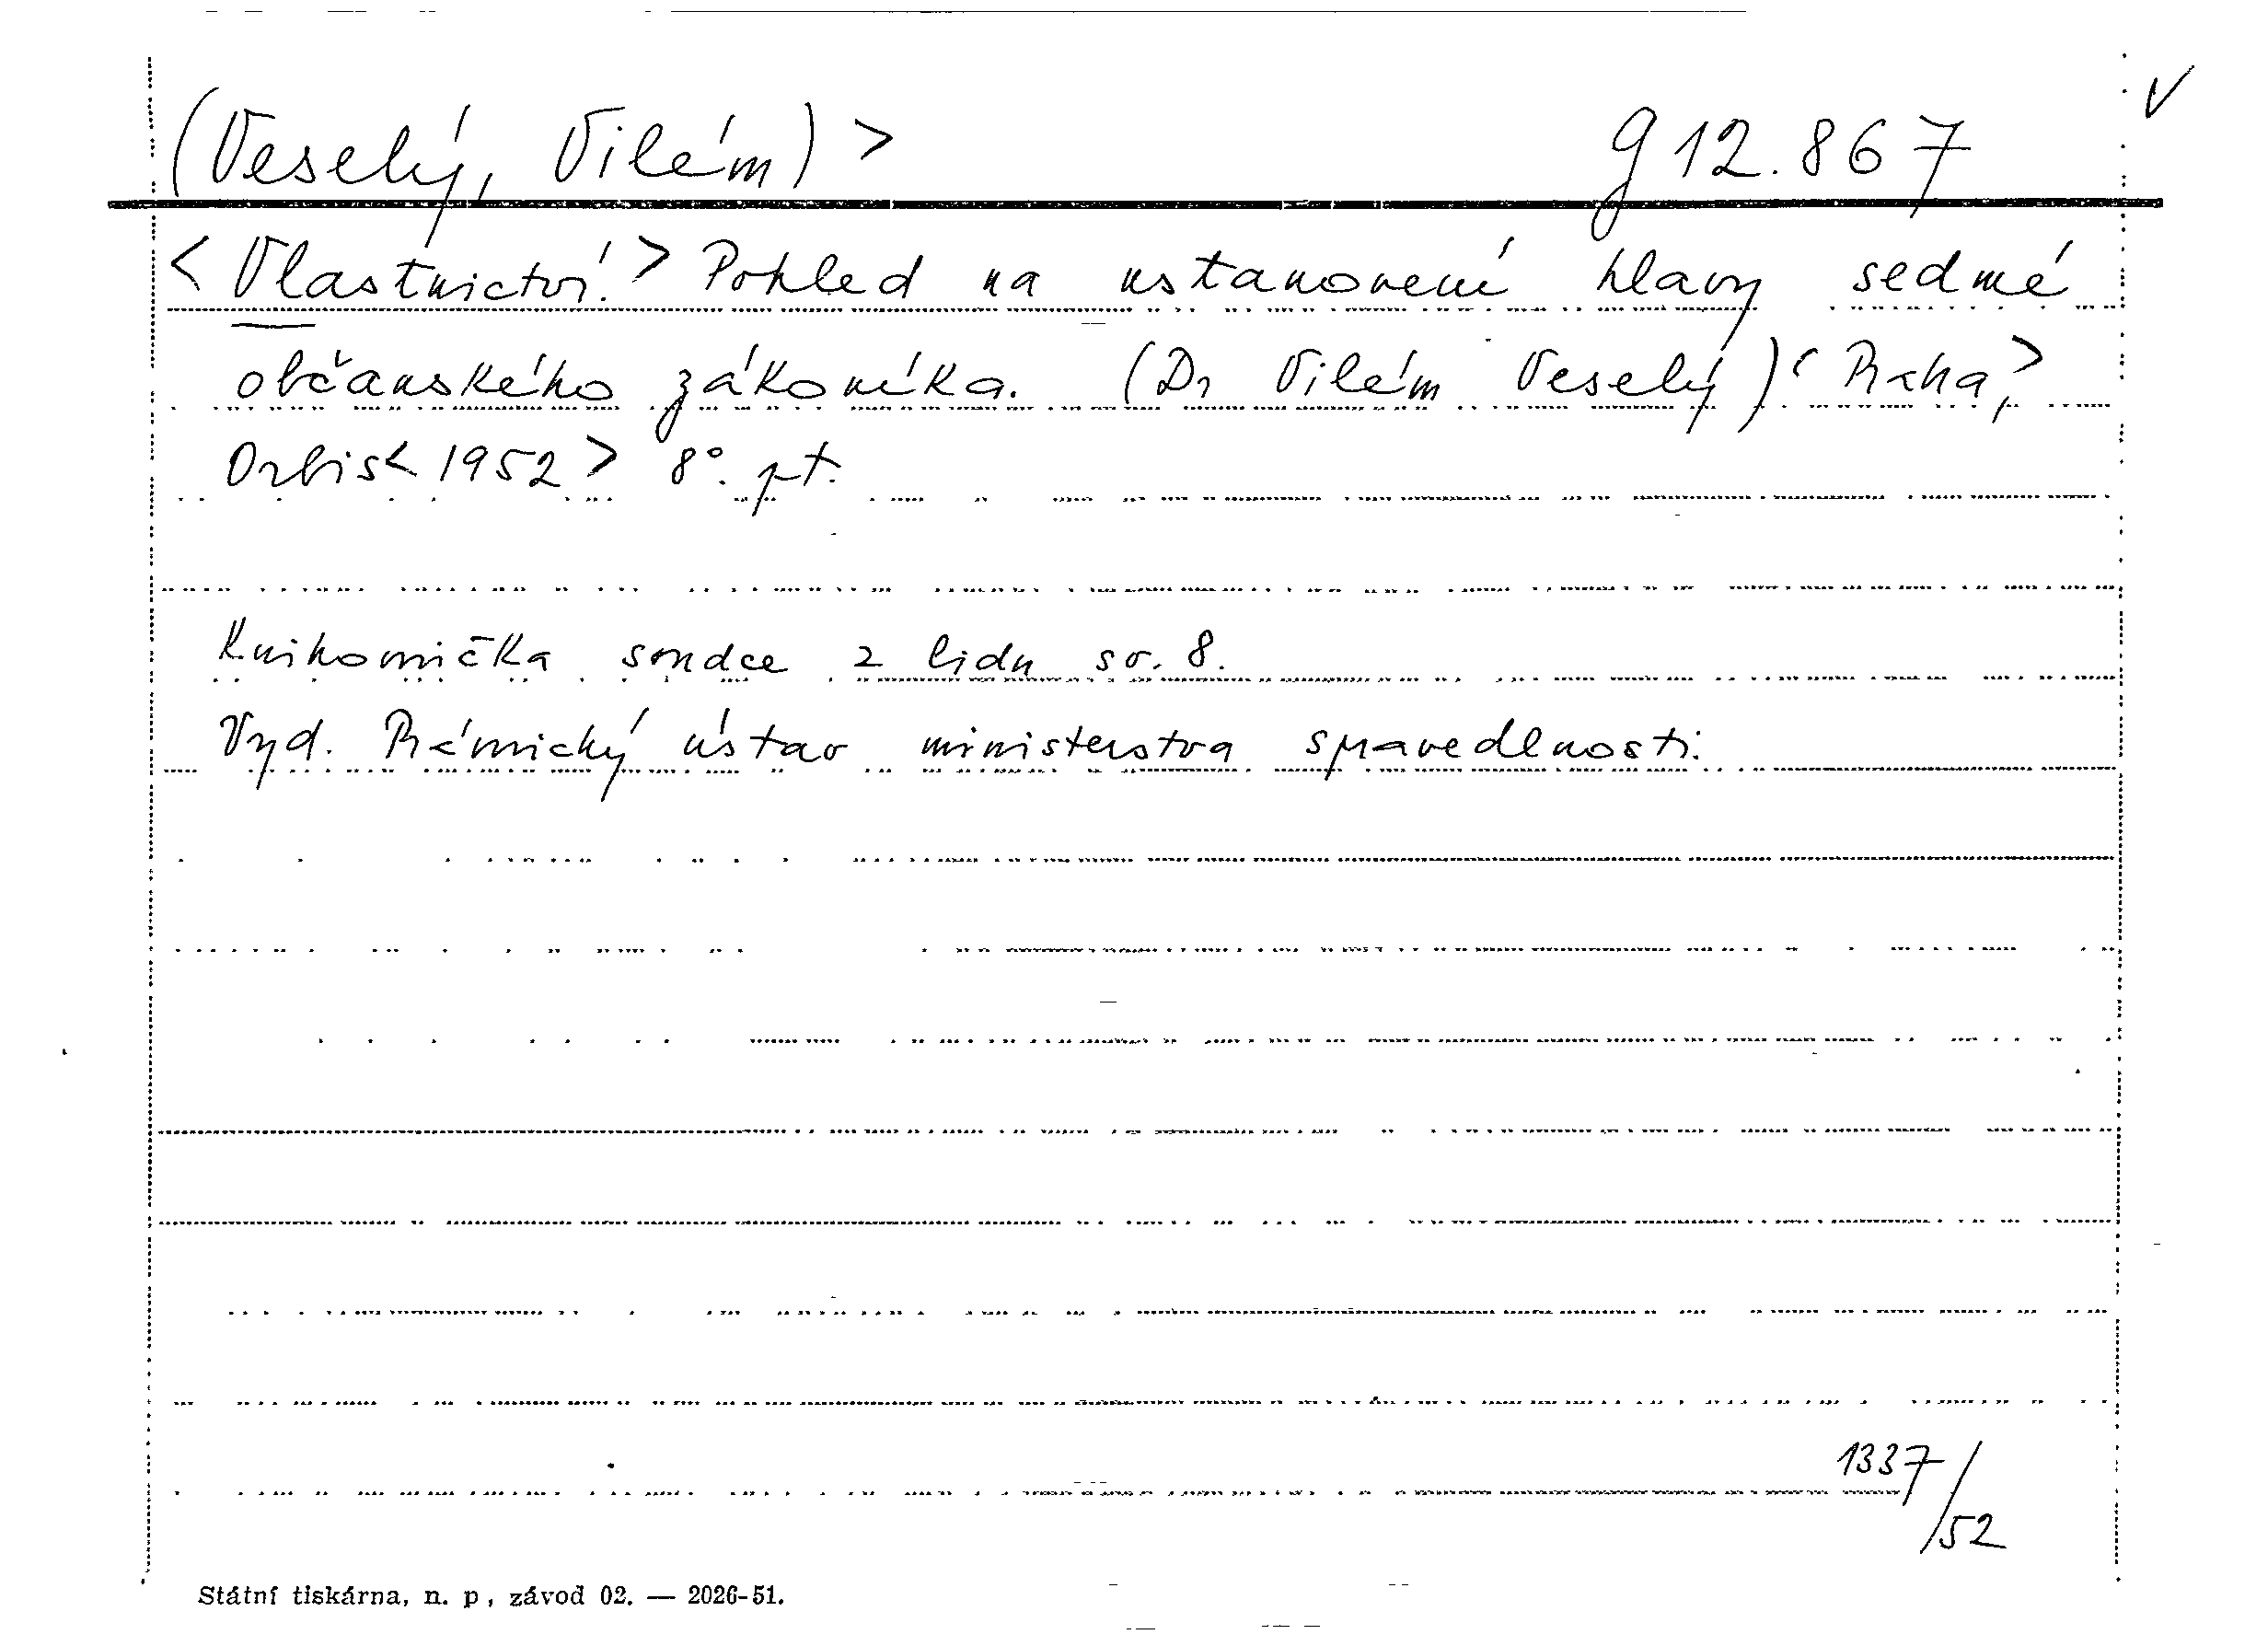 (Veselý, Vilém) > g 12.867 V
< Vlastnictví. > Pohled na ustanovení hlavy sedmé
občanského zákoníka. (Dr Vilém Veselý) < Praha, >
Orbis < 1952 > 8°. pt.
Knihovnička soudce z lidu sv. 8.
Vyd. Právnický ústav ministerstva spravedlnosti.
1337/52
Státní tiskárna, n. p , závod 02. — 2026-51.